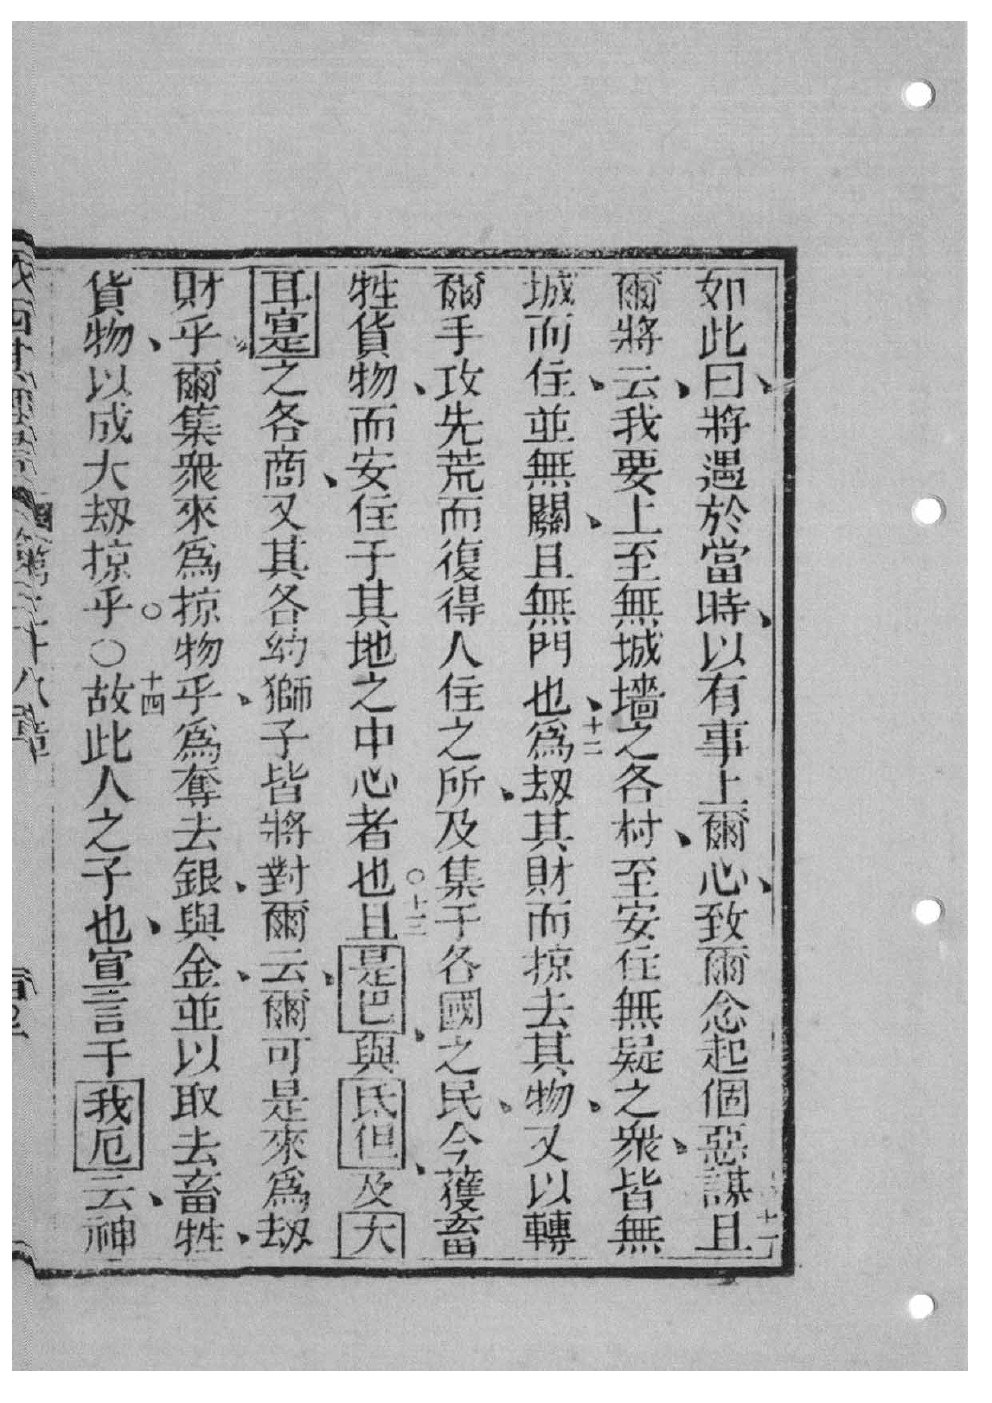 如此曰、將遇於當時、以有事上爾心、致爾念起個惡謀十一且
爾將云、我要上至無城墻之各村、至安住無疑之衆、皆無
城而住、並無關、且無門也、十二爲刼其財而掠去其物、又以轉
爾手攻先荒而復得人住之所、及集于各國之民、今獲畜
牲貨物、而安住于其地之中心者也○十三且是巴、與氐但、及大
耳寔之各商、又其各幼獅子皆將對爾云、爾可是來爲刼
財乎爾集衆來爲掠物乎、爲奪去銀、與金、並以取去畜牲、
貨物、以成大刼掠乎○○十四故此人之子也、宣言于我厄云、神
第三十八章